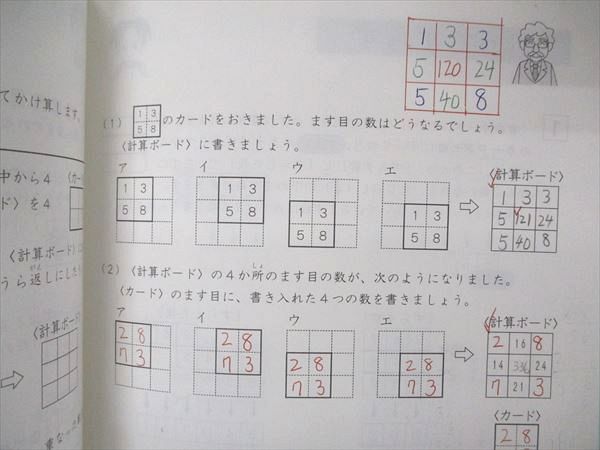 1 3 3
5 120 24
5 40 8
てかけ算します。
(1) 1 3 のカードをおきました。ます目の数はどうなるでしょう。
5 8
〈計算ボード〉に書きましょう。
ア イ ウ エ 〈計算ボード〉
1 3 1 3 1 3 3
5 8 5 8 1 3 1 3 5 121 24
5 8 5 8 5 40 8
中から4
ド〉を4
〈計算ボード〉
うら返しにした
(2) 〈計算ボード〉の4か所のます目の数が、次のようになりました。
〈カード〉のます目に、書き入れた4つの数を書きましょう。
ア イ ウ エ 〈計算ボード〉
2 8 2 8 2 16 8
7 3 7 3 2 8 2 8 14 336 24
7 3 7 3 7 21 3
〈計算ボード〉
〈カード〉
2 8